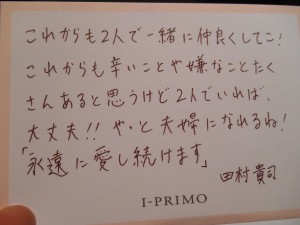 これからも2人で一緒に仲良くしてこ!
これからも辛いことや嫌なことたく
さんあると思うけど2人でいれば、
大丈夫!! やっと夫婦になれるね!
「永遠に愛し続けます」
田村貴司
I-PRIMO